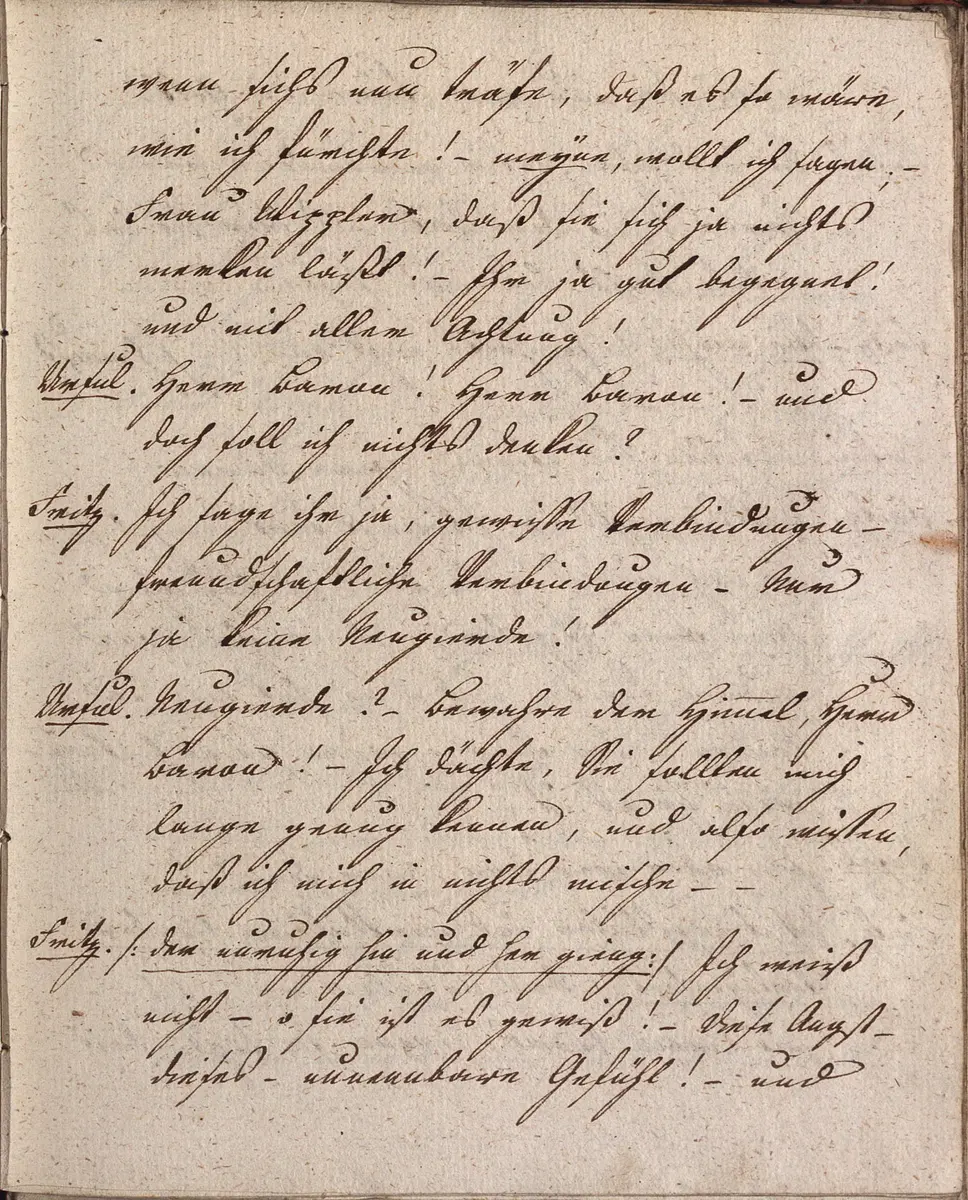 wenn sichs nun träfe, daß es so wäre,
wie ich fürchte! – meyne, wollt ich sagen, –
Frau Wippler, daß sie sich ja nichts
merken läßt! – Ihr ja gut begegnet!
und mit aller Achtung!
Ursul. Herr Baron! Herr Baron! – und
doch soll ich nichts denken?
Fritz. Ich sage ihr ja, gewisse Verbindungen –
freundschaftliche Verbindungen – Nur
ja keine Neugierde!
Ursul. Neugierde? – Bewahre der Him̅el, Herr
Baron! – Ich dächte, Sie sollten mich
lange genug kennen, und also wissen,
daß ich mich in nichts mische – –
Fritz. /: der unruhig hin und her gieng :/ Ich weiß
nicht – o sie ist es gewiß! – Diese Angst –
dieses – unnennbare Gefühl! – und